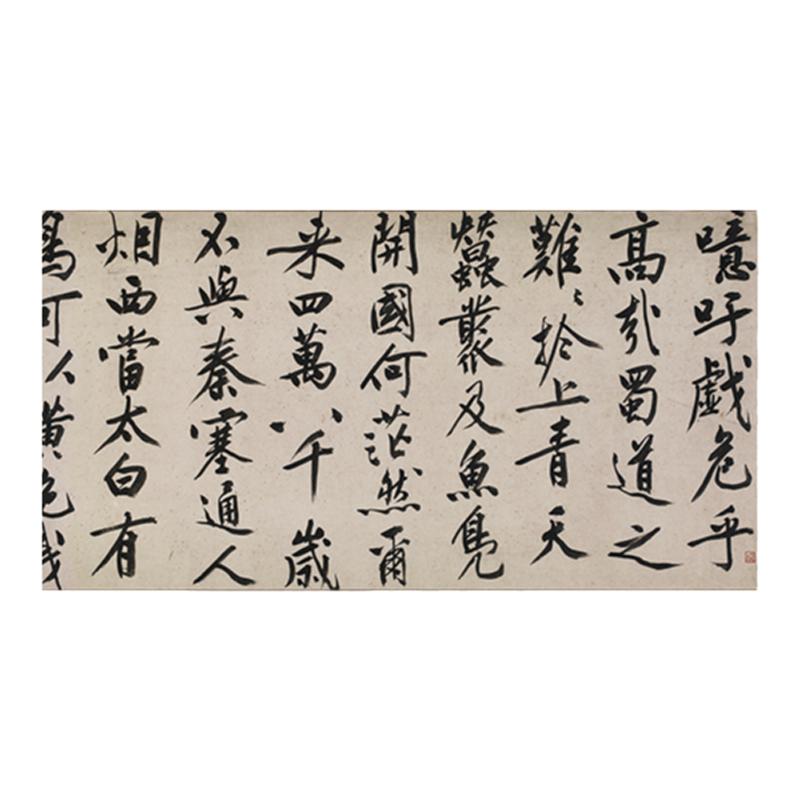 噫吁戲危乎
高哉蜀道之
難〻於上青天
蠶叢及魚鳧
開國何茫然爾
来四萬八千歲
不與秦塞通人
烟西當太白有
鳥可以橫絶峨